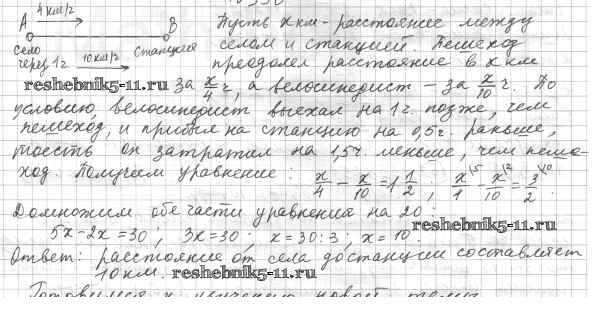 4 км/ч
А В Пусть x км - расстояние между
село станцией селом и станцией. Пешеход
через 1ч 10 км/ч преодолел расстояние в x км
reshebnik5-11.ru за x/4 ч, а велосипедист – за x/10 ч. По
условию велосипедист выехал на 1 ч. позже, чем
пешеход, и прибыл на станцию на 0,5 ч. раньше,
тоесть он затратил на 1,5 ч. меньше, чем пеше-
ход. Получаем уравнение: x/4 - x/10 = 1 1/2; x/4 \5 - x/10 \2 = 3/2 \10.
Домножим обе части уравнения на 20:
5x-2x=30; 3x=30; x=30:3; x=10. reshebnik5-11.ru
Ответ: расстояние от села до станции составляет
10 км. reshebnik5-11.ru
Готовимся к изучению новой темы